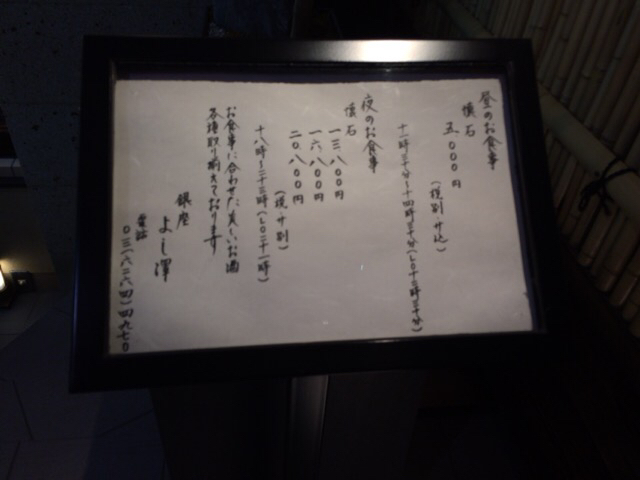 昼のお食事
懐石
五、000円
(税別・サ込)
十一時三十分〜十四時三十分(LO十三時三十分)
夜のお食事
懐石
一三、八00円
一六、八00円
二0、八00円
(税サ別)
十八時〜二十三時(LO二十一時)
お食事に合わせた美しいお酒
各種取り揃えております
銀座
よし澤
電話
0三(六二六四)四九七0